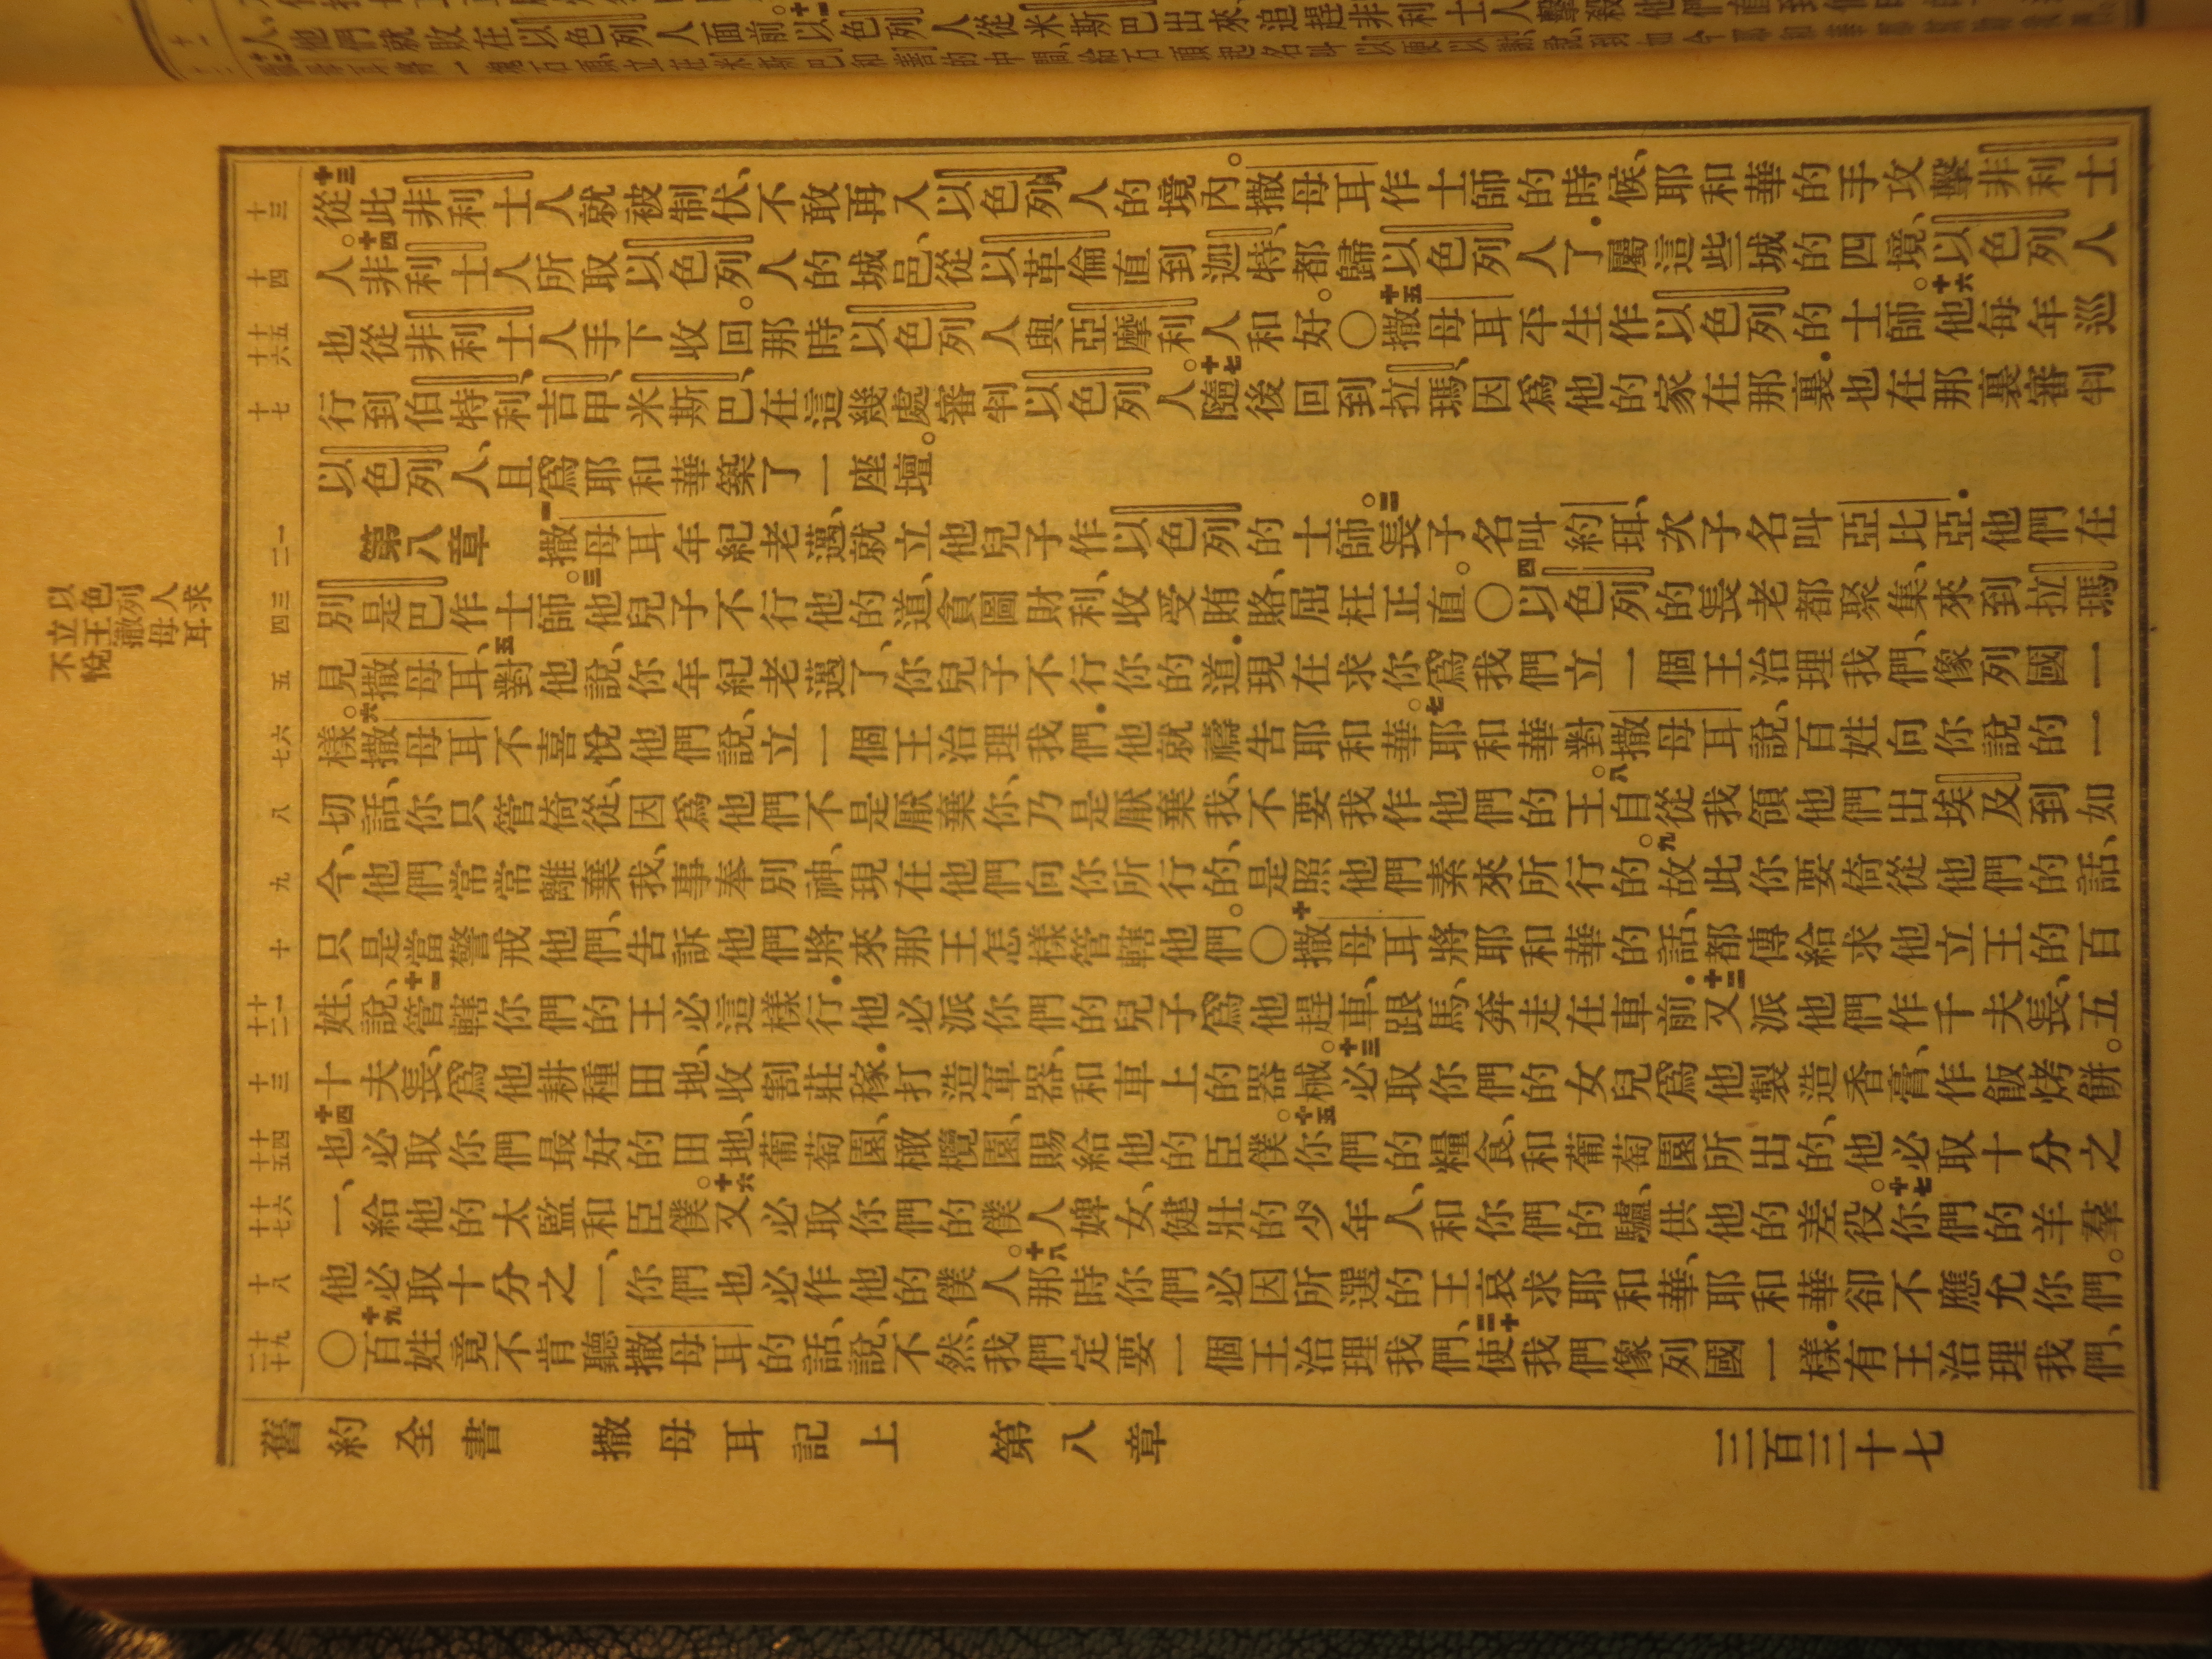 人、他們就敗在以色列人面前。十一以色列人從米斯巴出來、追趕非利士人、擊殺他們、直到
一塊石頭立在米斯巴和善的中間、給石頭起名叫以便以謝、說、到如今
十三
十四
十五 十六
十七
一 二
三 四
五
六 七
八
九
十
十一 十二
十三
十四 十五
十六 十七
十八
十九 二十
以色列人求
立王撒母耳
不悅
十三從此非利士人就被制伏、不敢再入以色列人的境內。撒母耳作士師的時候、耶和華的手攻擊非利士
人。十四非利士人所取以色列人的城邑、從以革倫直到迦特、都歸以色列人了．屬這些城的四境、以色列人
也從非利士人手下收回。那時以色列人與亞摩利人和好。〇十五撒母耳平生作以色列的士師。十六他每年巡
行到伯特利、吉甲、米斯巴、在這幾處審判以色列人。十七隨後回到拉瑪、因爲他的家在那裏．也在那裏審判
以色列人、且爲耶和華築了一座壇。
第八章 一撒母耳年紀老邁、就立他兒子作以色列的士師。二長子名叫約珥、次子名叫亞比亞．他們在
別是巴作士師。三他兒子不行他的道、貪圖財利、收受賄賂、屈枉正直。〇四以色列的長老都聚集、來到拉瑪
見撒母耳、五對他說、你年紀老邁了、你兒子不行你的道．現在求你爲我們立一個王治理我們、像列國一
樣。六撒母耳不喜悅他們說、立一個王治理我們．他就禱告耶和華。七耶和華對撒母耳說、百姓向你說的一
切話、你只管倚從、因爲他們不是厭棄你、乃是厭棄我、不要我作他們的王。八自從我領他們出埃及到如
今、他們常常離棄我、事奉別神、現在他們向你所行的、是照他們素來所行的。九故此你要倚從他們的話、
只是當警戒他們、告訴他們、將來那王怎樣管轄他們。〇十撒母耳將耶和華的話、都傳給求他立王的百
姓、說、十一管轄你們的王必這樣行．他必派你們的兒子爲他趕車、跟馬、奔走在車前．十二又派他們作千夫長、五
十夫長、爲他耕種田地、收割莊稼．打造軍器、和車上的器械。十三必取你們的女兒爲他製造香膏、作飯烤餅。
十四也必取你們最好的田地、葡萄園、橄欖園、賜給他的臣僕。十五你們的糧食、和葡萄園所出的、他必取十分之
一、給他的太監和臣僕。十六又必取你們的僕人婢女、健壯的少年人、和你們的驢、供他的差役。十七你們的羊羣
他必取十分之一、你們也必作他的僕人。十八那時你們必因所選的王哀求耶和華、耶和華卻不應允你們。
〇十九百姓竟不肯聽撒母耳的話、說、不然、我們定要一個王治理我們、二十使我們像列國一樣．有王治理我們、
舊約全書 撒母耳記上 第八章 三百三十七